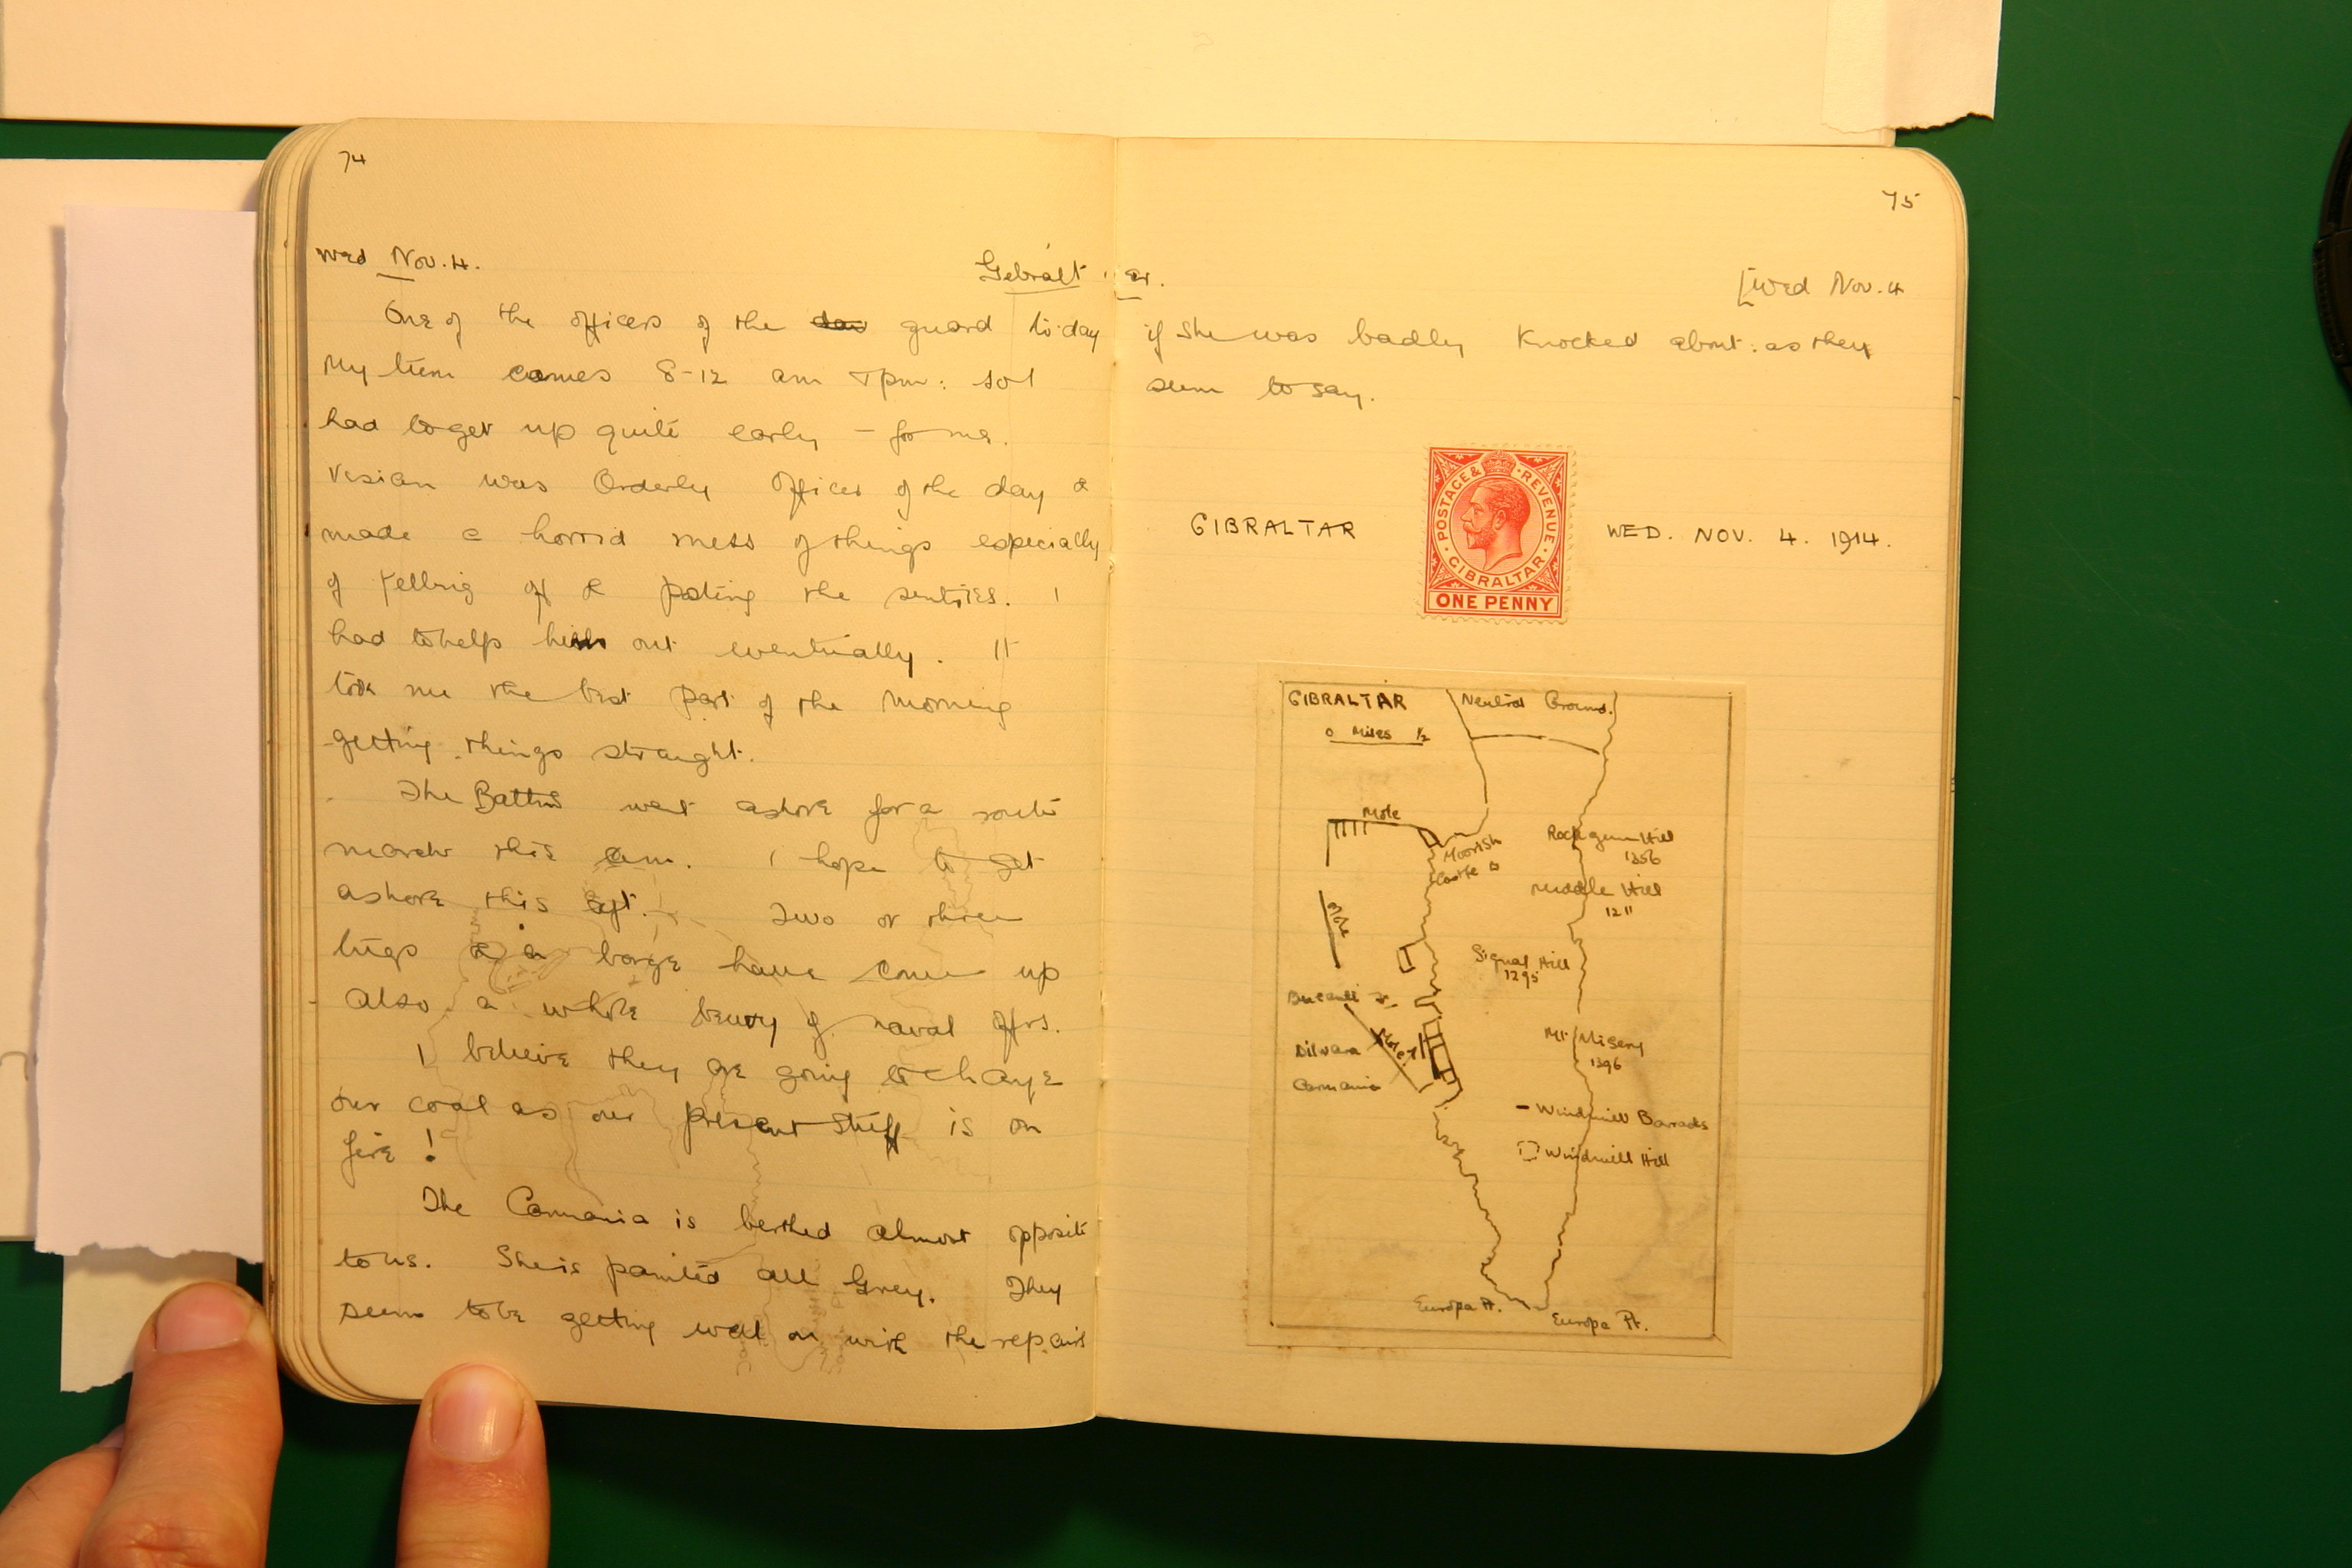 74
Wed Nov. 4.
Gebralt ar.
One of the officers of the day guard to-day
My turn comes 8-12 am & pm: so I
had to get up quite early – for me.
Vesian was Orderly Officer of the day &
made a horrid mess of things especially
of telling off & posting the sentries. I
had to help him out eventually. It
took me the best part of the morning
getting things straight.
The Battn went ashore for a route
march this am. I hope to get
ashore this aft. Two or three
tugs & a barge have come up
also a whole bevvy of naval offrs.
I believe they are going to change
our coal as our present stuff is on
fire!
The Carmania is berthed almost opposite
to us. She is painted all Grey. They
seem to be getting well on with the repairs
75
[Wed Nov. 4
if she was badly knocked about: as they
seem to say.
POSTAGE & REVENUE
GIBRALTAR
ONE PENNY
GIBRALTAR
WED. NOV. 4. 1914.
GIBRALTAR
Neutral Ground.
0 Miles ½
Mole
Moorish
Castle
Rock gun Hill
1356
Middle Hill
1211
Mole
Signal Hill
1295
Mole
Dilwara
Carmania
Mt Misery
1396
Windmill Barracks
Windmill Hill
Europa Pt.
Europa Pt.